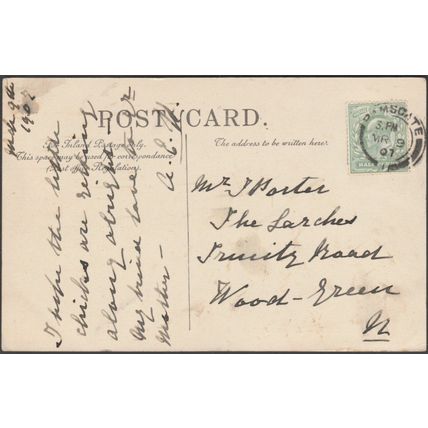 POST CARD.
For Inland Postage only,
This space may be used for correspondence
(Post office Regulations).
The address to be written here.
RAMSGATE
5. PM
MR 9
07
HALF
Mr J Porter
The Larches
Trinity Road
Wood-Green
N
1907
I hope the little
chicks are
along alright
My kind love to your
Mother -
A. E. H